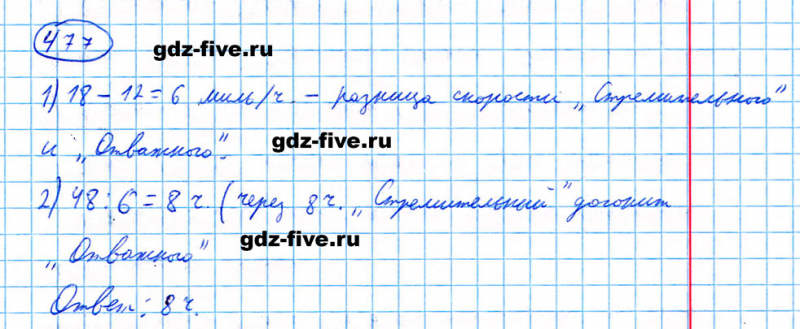 477
gdz-five.ru
1) 18 - 12 = 6 миль/ч. - разница скорости „Стремительного"
gdz-five.ru
и „Отважного".
2) 48 : 6 = 8 ч. (через 8 ч. „Стремительный" догонит
gdz-five.ru
„Отважного"
Ответ: 8 ч.